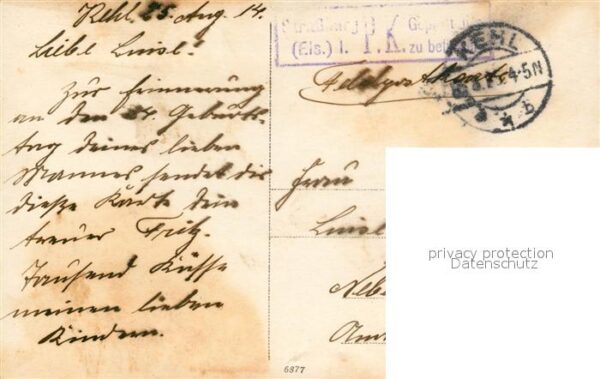 Kehl. 25. Aug. 14.
Liebe Luise!
Zur Erinnerung
an den 34. Geburts-
tag deines lieben
Mannes sendet dir
dieße Karte dein
treuer Fritz.
Tausend Küsse
meinen lieben
Kindern.
Straßburg
(Els.) I. P.K. zu
KEHL
4-5N
* b
Feldpostkarte
Frau
Luise
privacy protection
Datenschutz
6877